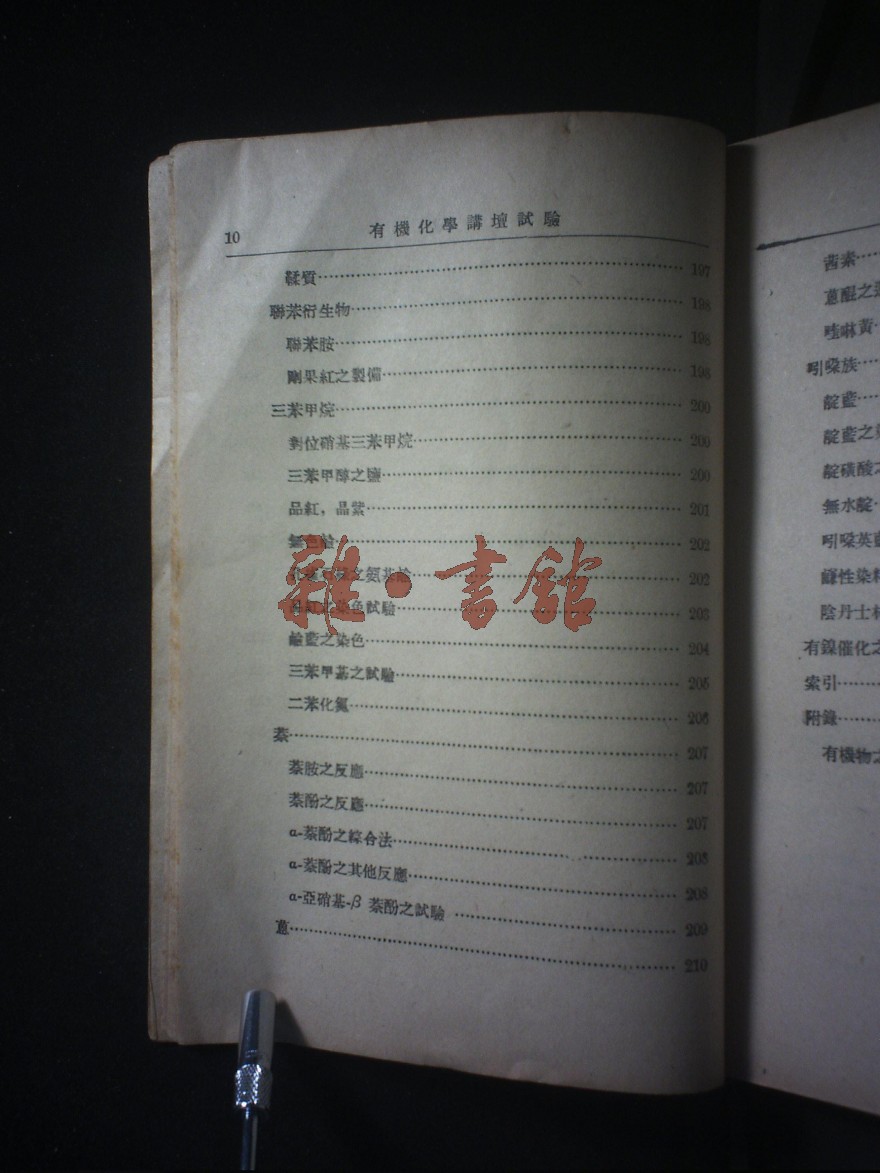 10
有機化學講壇試驗
鞣質 197
聯苯衍生物 198
聯苯胺 198
剛果紅之製備 198
三苯甲烷 200
對位硝基三苯甲烷 200
三苯甲醇之鹽 200
品紅，晶紫 201
無色 202
之氨基 202
紅之染色試驗 203
鹼藍之染色 204
三苯甲基之試驗 205
二苯化氮 206
萘 207
萘胺之反應 207
萘酚之反應 207
α-萘酚之綜合法 208
α-萘酚之其他反應 208
α-亞硝基-β 萘酚之試驗 209
蒽 210
雜·書館
茜素
蒽醌之
喹啉黃
吲哚族
靛藍
靛藍之
靛磺酸之
無水靛
吲哚
性染料
陰丹士林
有鎳催化之
索引
附錄
有機物之